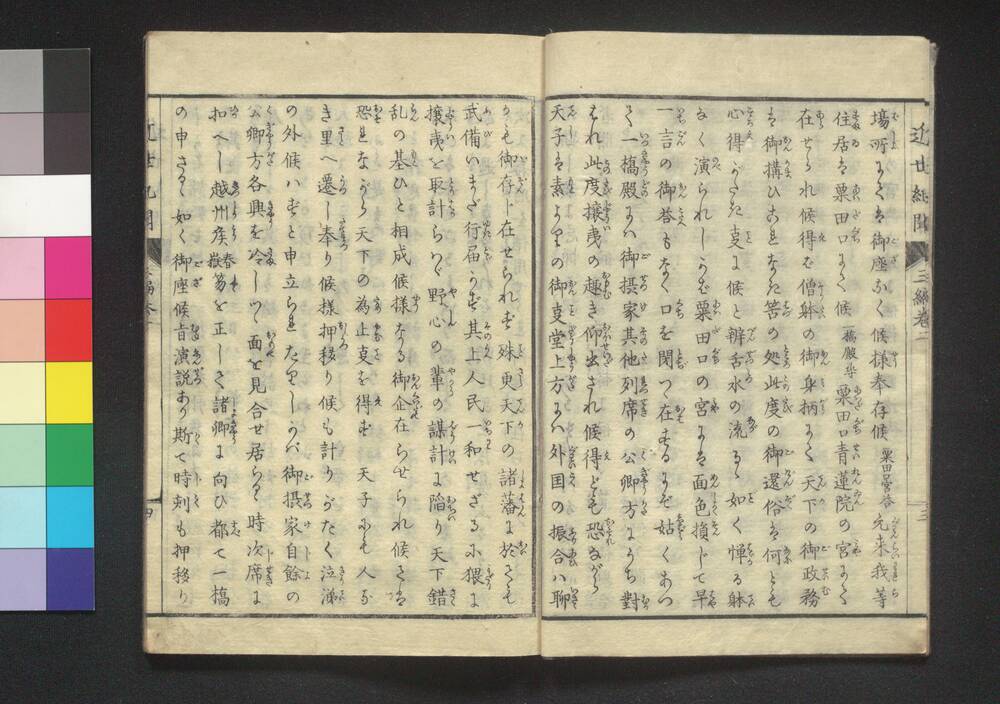 近世紀聞 三編巻一 三
塲所にては御座なく候様奉存候 粟田宮答 元来我等
住居は粟田口にて候 一橋殿尋 粟田口青蓮院の宮にて
在せられ候得ば僧躰の御身柄にて天下の御政務
は御構ひこれなき筈の処此度の御還俗は何とも
心得がたき支に候と辨舌水の流るゝ如く憚る躰
なく演られしかば粟田口の宮には面色損じて早
一言の御答もなく口を閉つて在するにぞ姑くあつ
て一橋殿には御摂家其他列席の公卿方にうち對
はれ此度攘夷の趣き仰出され候得ども恐ながら
天子は素よりの御支堂上方には外国の振合ハ聊
かも御存じ在せられず殊更天下の諸藩に於きても
武備いまだ行届かず其上人民一和せざるに猥に
攘夷を取計らはゞ野心の輩の謀計に陥り天下錯
乱の基ひと相成候様なる御企在らせられ候さは
恐れながら天下の為止支を得ず 天子にも人な
き里へ遷し奉り候様押移り候も計りがたく泣涕
の外候ハずと申立られたりしかバ御摂家自餘の
公卿方各興を冷しつゝ面を見合せ居らる時次席に
扣へし越州矦春嶽笏を正しく諸卿に向ひ都て一橋
の申さるゝ如く御座候旨演説あり斯て時刻も押移り
近世紀聞 三編巻一 四